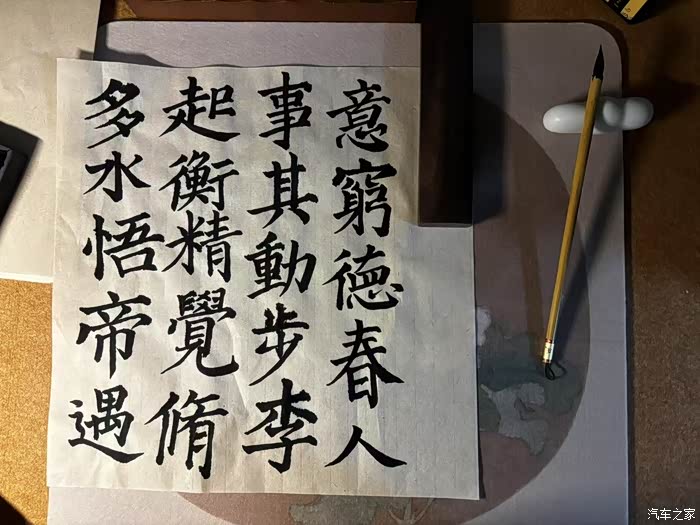 意窮德春人
事其動步李
起衡精覺脩
多水悟帝遇
汽车之家